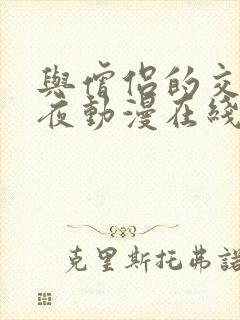 與僧侶的交
夜動漫在綫
克里斯托弗諾